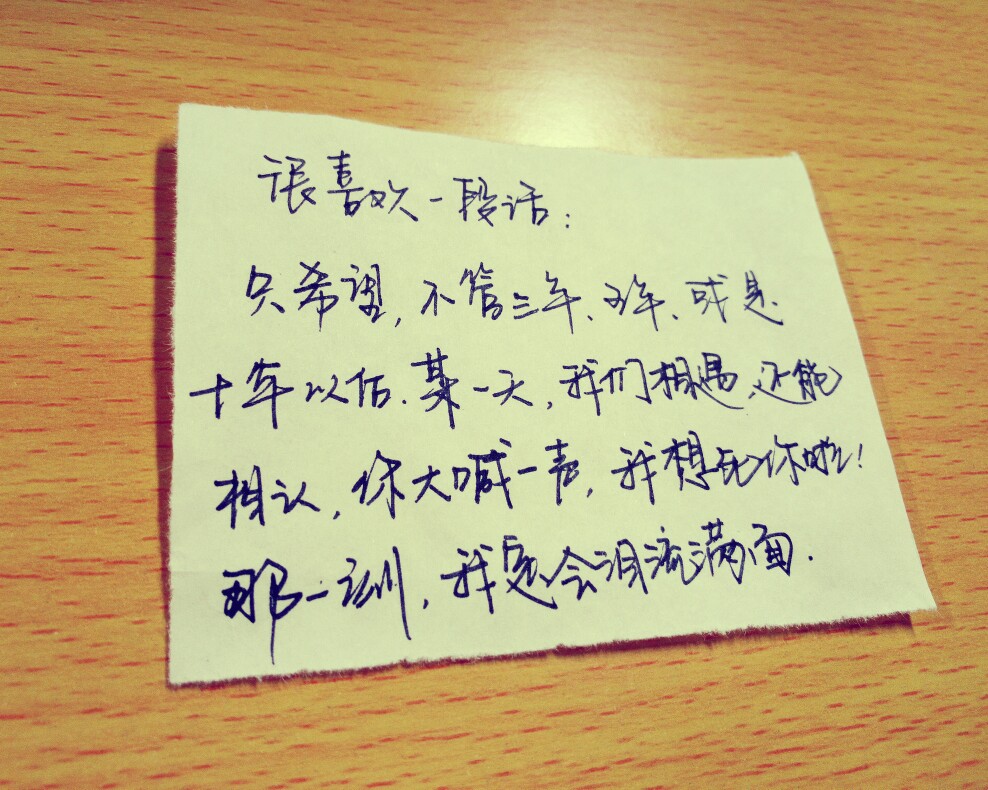 很喜欢一段话:
只希望,不管三年、五年、或是
十年以后.某一天,我们相遇,还能
相认,你大喊一声,我想死你啦!
那一刻,我定会泪流满面.